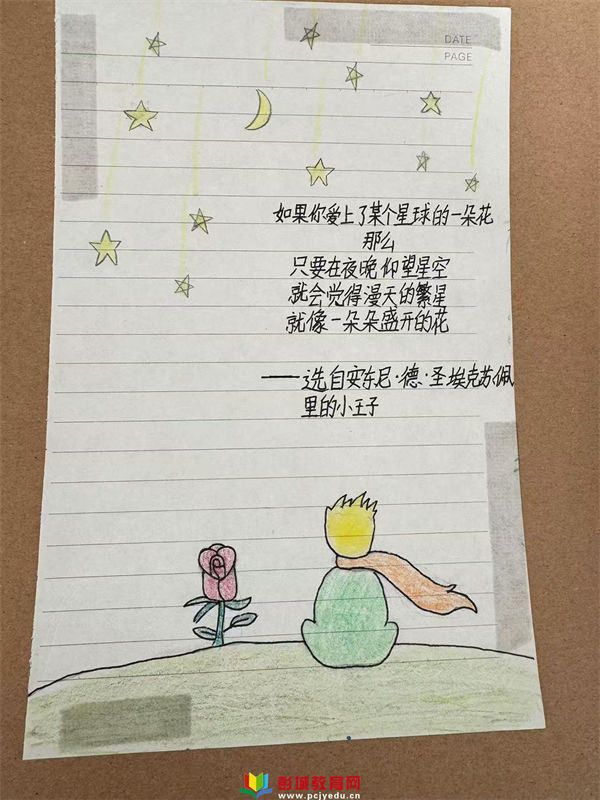 DATE
PAGE
如果你爱上了某个星球的一朵花
那么
只要在夜晚仰望星空
就会觉得漫天的繁星
就像一朵朵盛开的花
——选自安东尼·德·圣埃克苏佩
里的小王子
彭城教育网
www.pcjyedu.cn